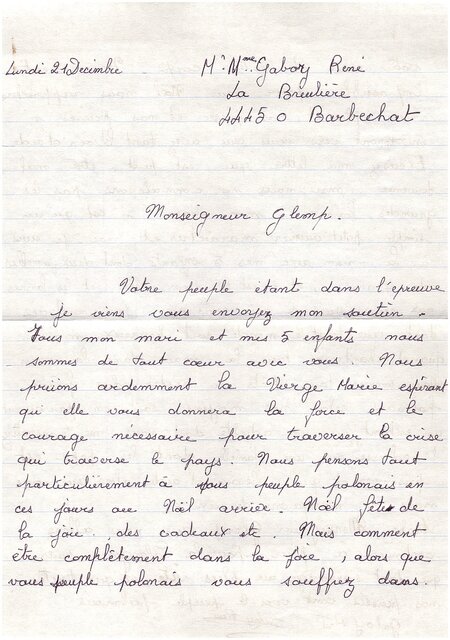 Lundi 21 Décembre
Mr. Mme Gabory René
La Breulière
44450 Barbechat
Monseigneur Glemp.
Votre peuple étant dans l'épreuve
je viens vous envoyez mon soutien.
Tous mon mari et mes 5 enfants nous
sommes de tout cœur avec vous. Nous
prions ardemment la Vierge Marie espérant
qu'elle vous donnera la force et le
courage nécessaire pour traverser la crise
qui traverse le pays. Nous pensons tout
particulièrement à vous peuple polonais en
ces jours au Noël arrive. Noël fête de
la joie, des cadeaux etc. Mais comment
être complètement dans la joie, alors que
vous peuple polonais vous souffrez dans.